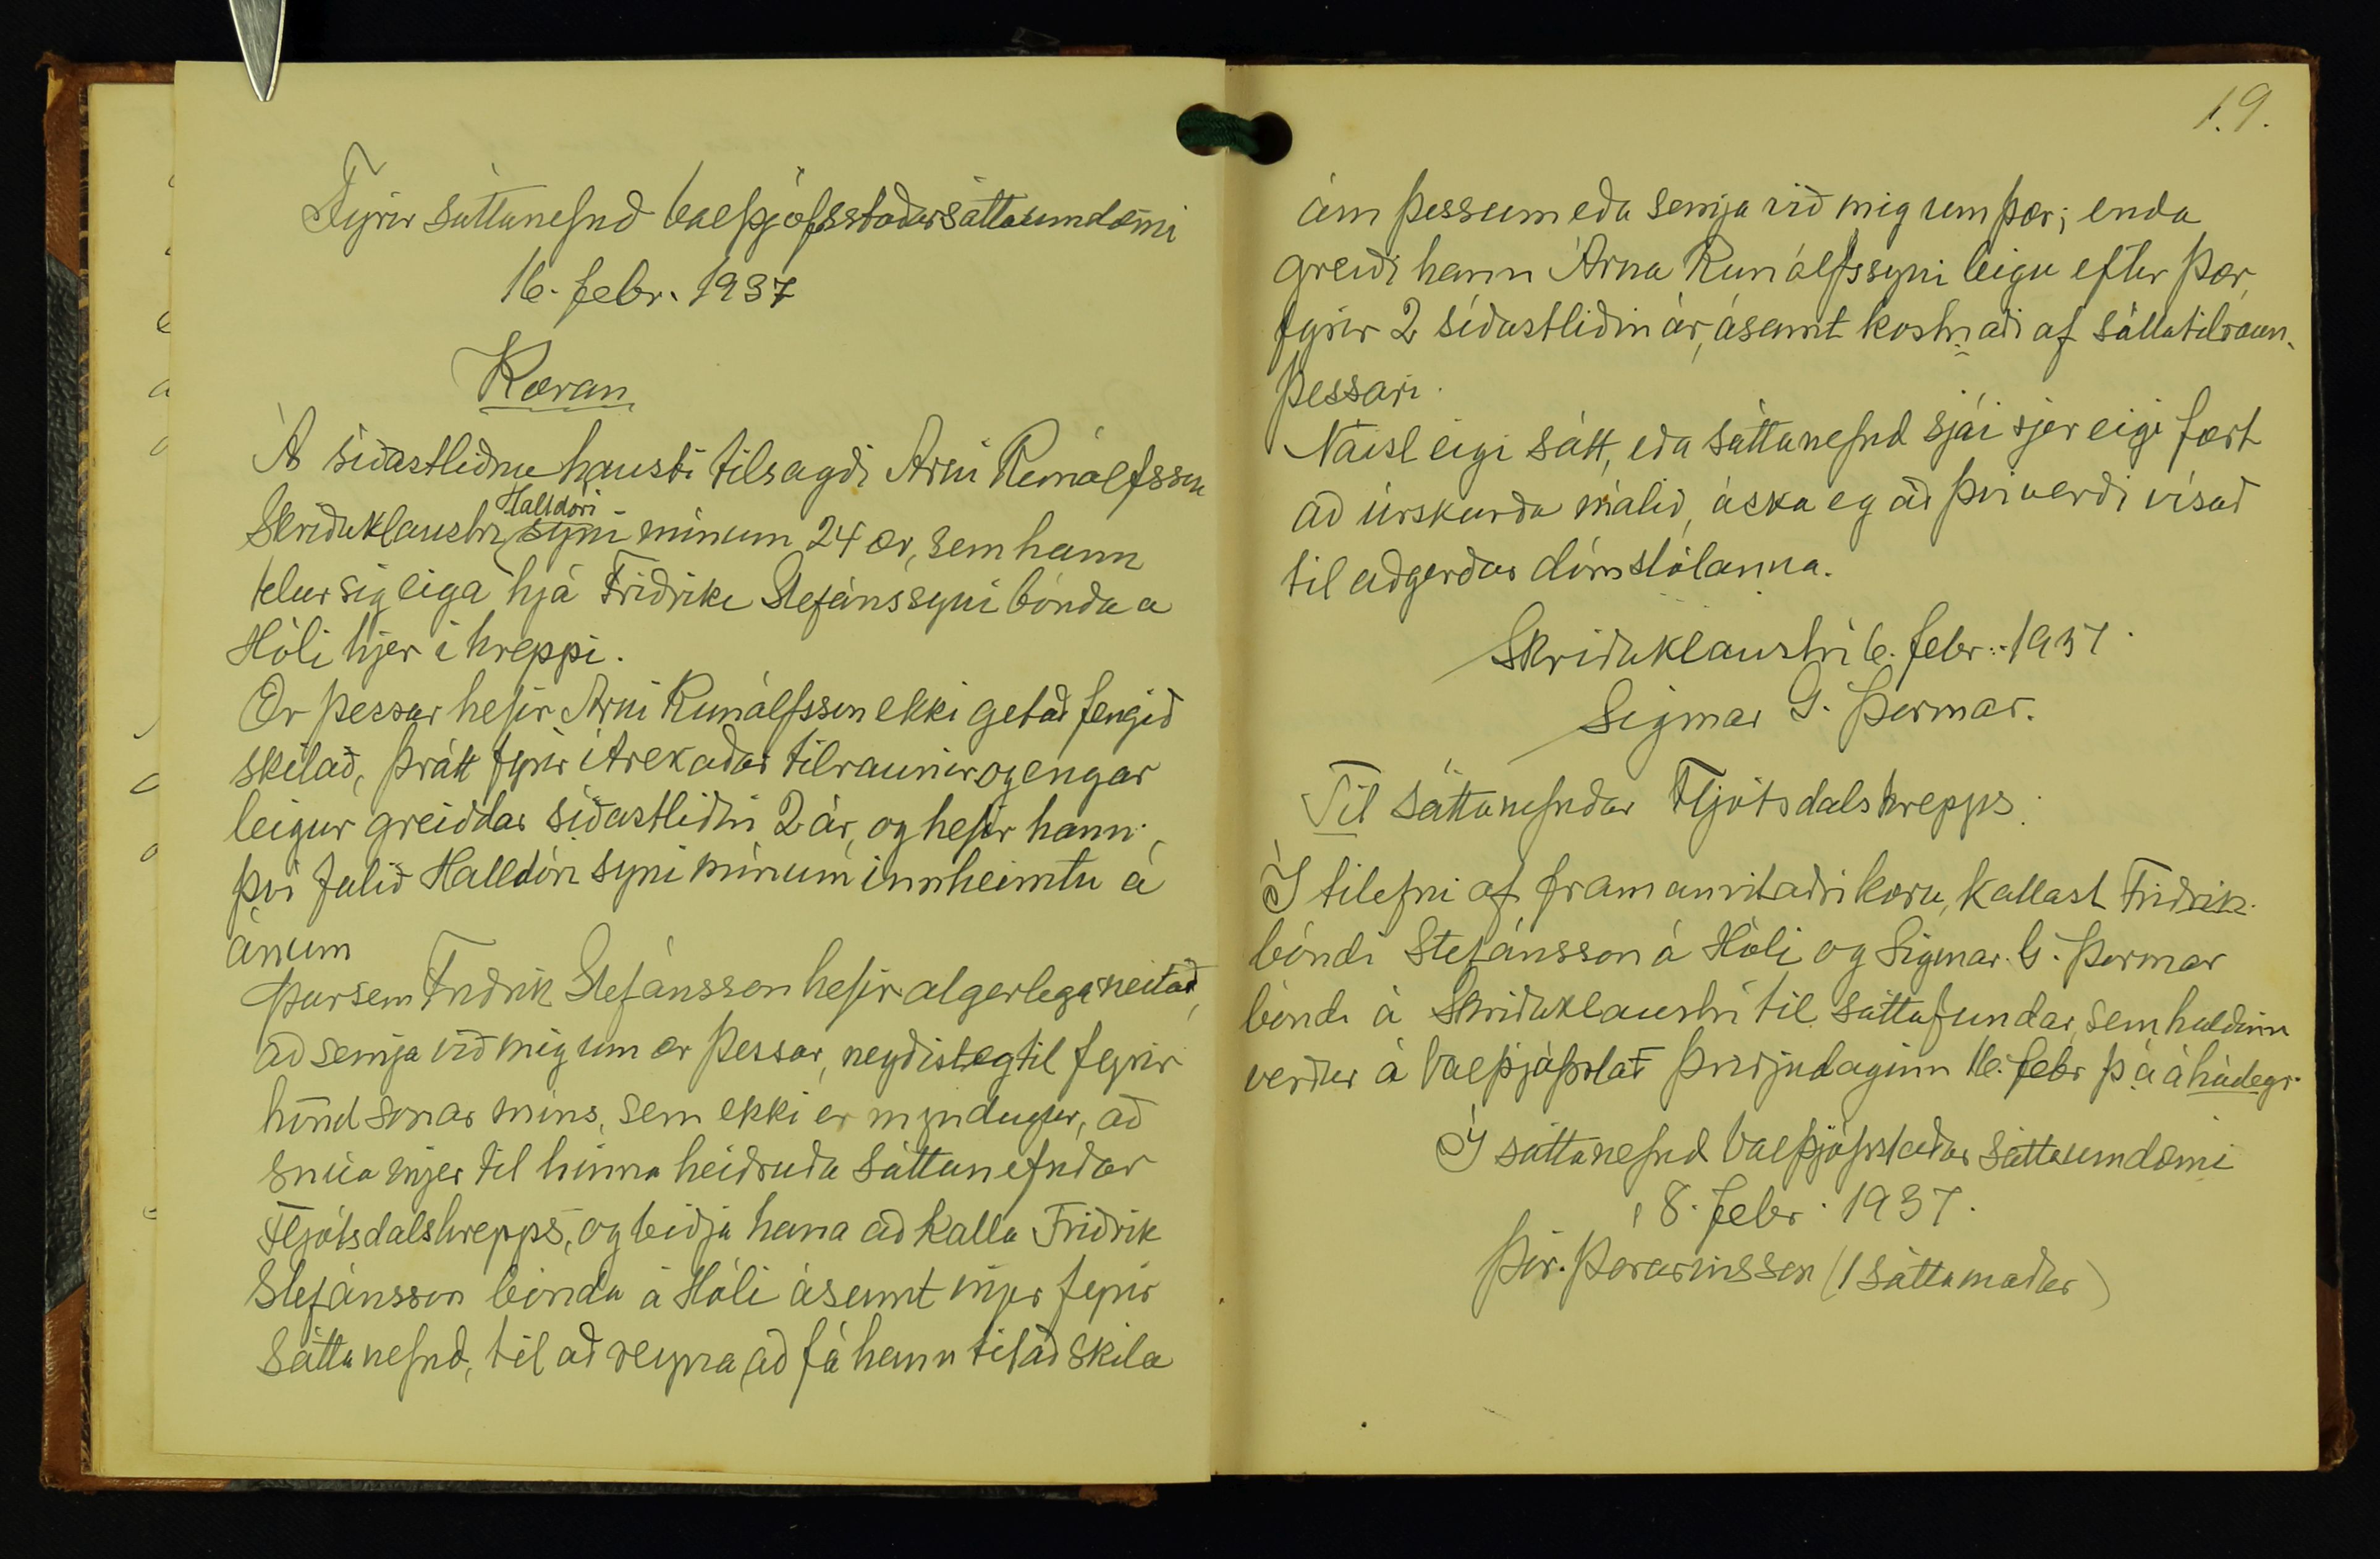 Fyrir sáttanefnd Valþjófsstaðarsáttaumdæmi
16. febr. 1937
Kæran
Á síðastliðnu hausti tilsagði Árni Runólfsson
Skriðuklaustri, Halldóri syni mínum 24 ær, sem hann
telur sig eiga hjá Friðriki Stefánssyni bónda a
Hóli hjer í hreppi.
Ær þessar hefir Árni Runólfsson ekki getað fengið
skilað, þrátt fyrir ítrekaðar tilraunir og engar
leigur greiddar síðastliðin 2 ár, og hefir hann
því falið Halldóri syni mínum innheimtu á
ánum
Þar sem Friðrik Stefánsson hefir algerlega neitað,
að semja við mig um ær þessar, neyðist eg til fyrir
hönd sonar míns, sem ekki er myndugur, að
snúa mjer til hinna heiðruðu sáttanefndar
Fljótsdalshrepps, og biðja hana að kalla Friðrik
Stefánsson bónda á Hóli ásamt mjer fyrir
sáttanefnd, til að reyna að fá hann til að skila
19.
ám þessum eða semja við mig um þær; enda
greiði hann Árna Runólfssyni leigu eftir þær,
fyrir 2 síðastliðin ár, ásamt kostnaði af sáttatilraun
þessari.
Náist eigi sátt, eða sáttanefnd sjái sjer eigi fært
að úrskurða málið, óska eg að því verði vísað
til aðgerðar dómstólanna.
Skriðuklaustri 6. febr. 1937
Sigmar G. Þormar.
Til sáttanefndar Fljótsdalshrepps.
Í tilefni af framanritaðri kæru, kallast Friðrik
bóndi Stefánsson á Hóli og Sigmar G. Þormar
bóndi á Skriðuklaustri til sáttafundar, sem haldinn
verður á Valþjófsstað þriðjudaginn 16. febr þ á á hádegi.
Í sáttanefnd Valþjófsstaðar sáttaumdæmi
8. febr. 1937.
Þór. Þórarinsson (1 sáttamaður)